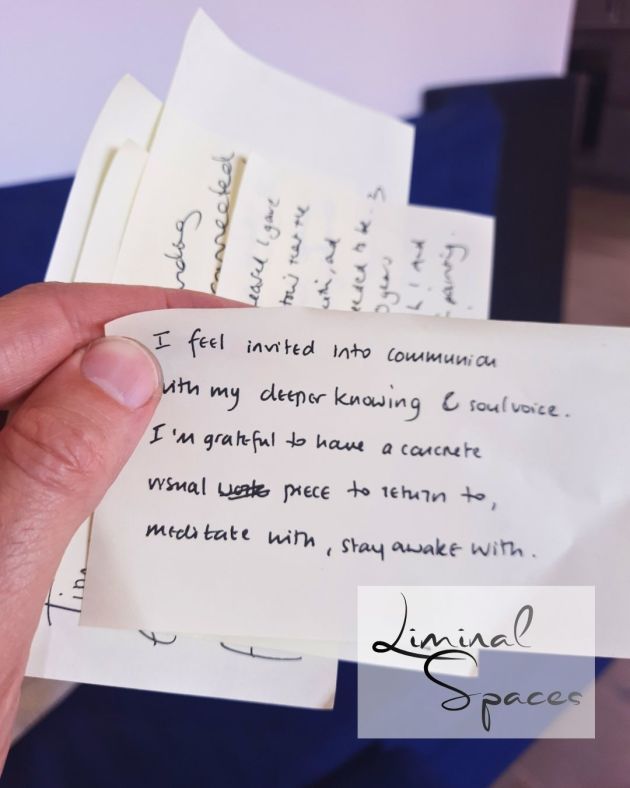 I feel invited into communion
with my deeper knowing & soul voice.
I'm grateful to have a concrete
visual work piece to return to,
meditate with, stay awake with.
connected
I gave
that the
, and
needed to be
years
I and
Liminal
Spaces